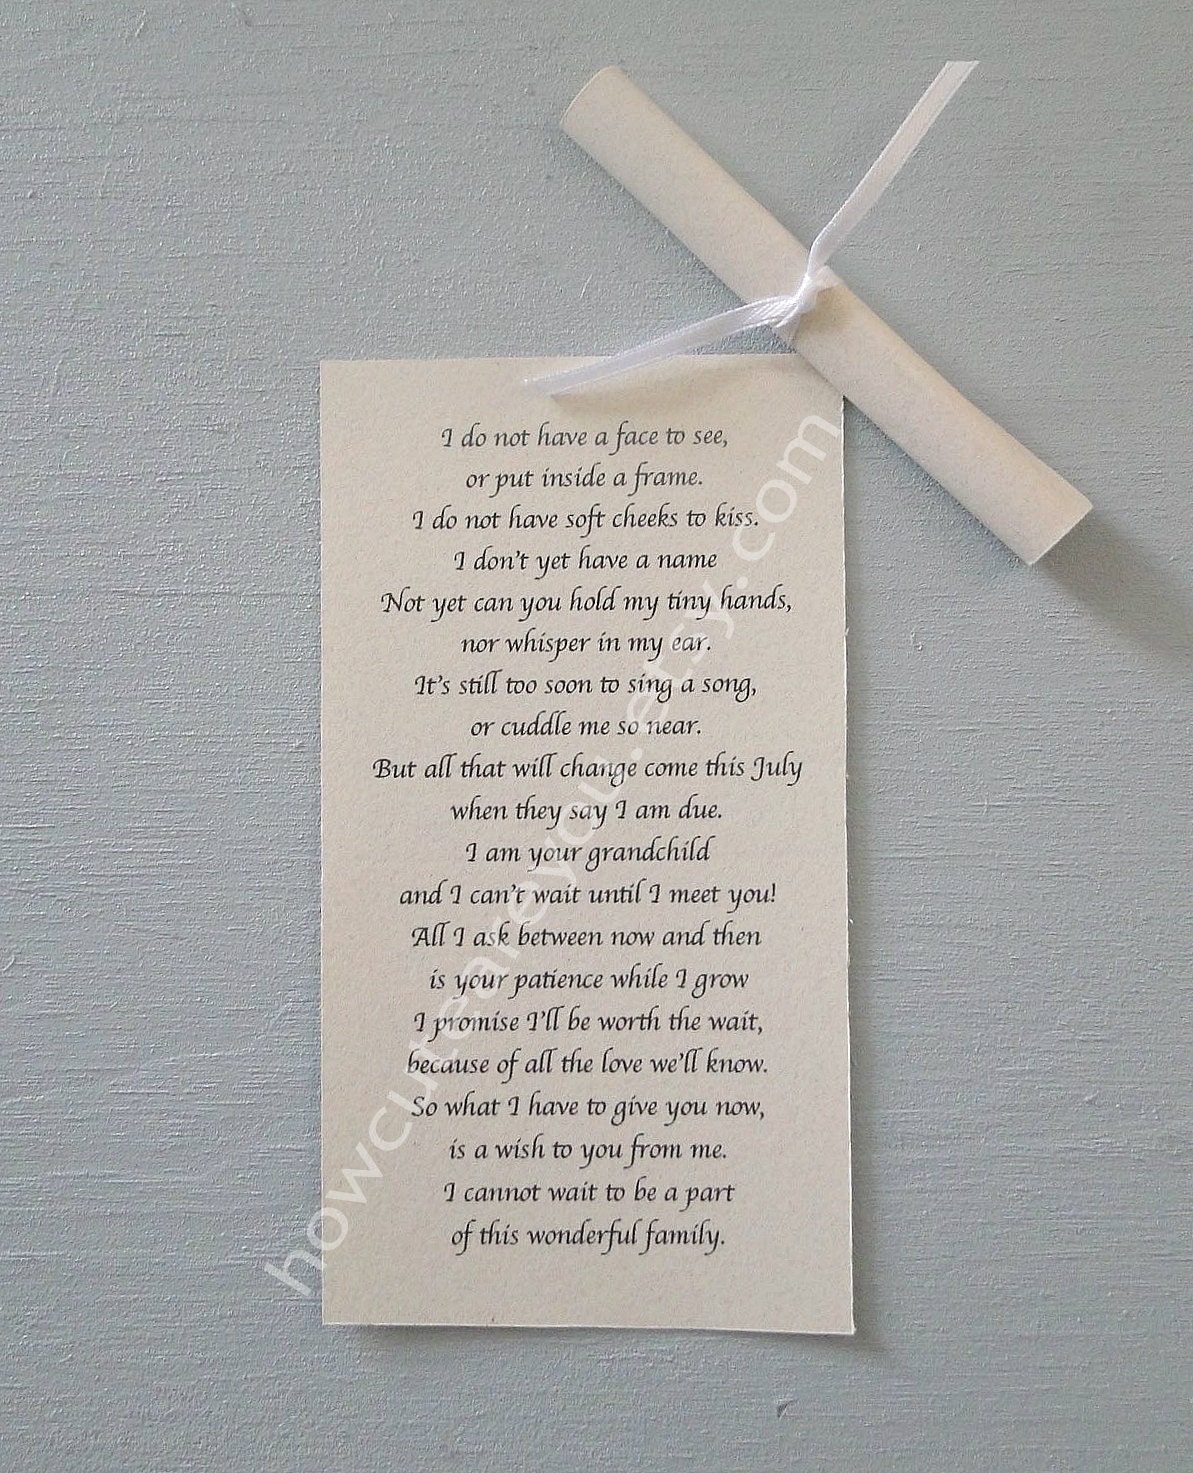 I do not have a face to see,
or put inside a frame.
I do not have soft cheeks to kiss.
I don't yet have a name
Not yet can you hold my tiny hands,
nor whisper in my ear.
It's still too soon to sing a song,
or cuddle me so near.
But all that will change come this July
when they say I am due.
I am your grandchild
and I can't wait until I meet you!
All I ask between now and then
is your patience while I grow
I promise I'll be worth the wait,
because of all the love we'll know.
So what I have to give you now,
is a wish to you from me.
I cannot wait to be a part
of this wonderful family.
howcuteareyou.etsy.com